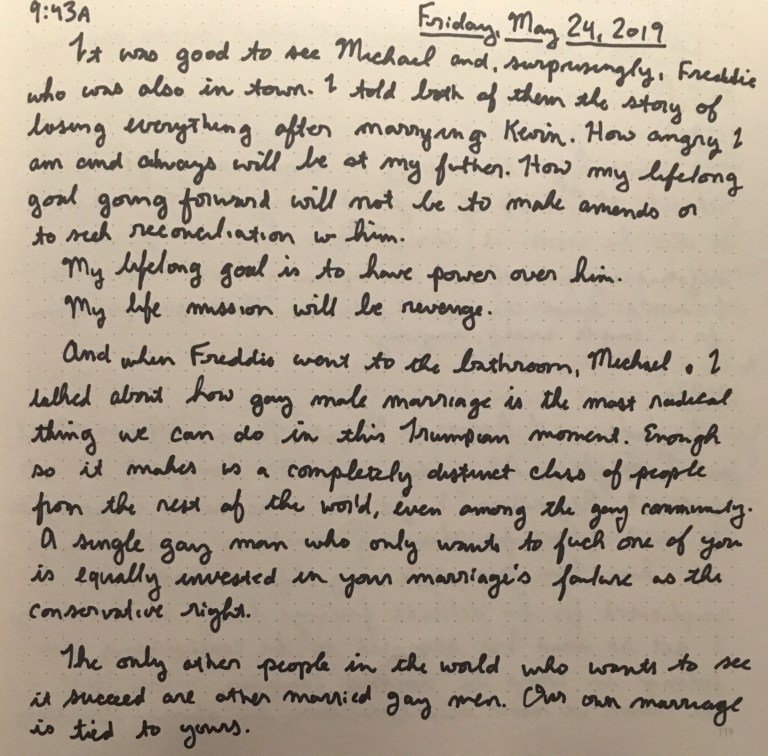 9:43A
Friday, May 24, 2019
It was good to see Michael and, surprisingly, Freddie
who was also in town. I told both of them the story of
losing everything after marrying Kevin. How angry I
am and always will be at my father. How my lifelong
goal going forward will not be to make amends or
to seek reconciliation w him.
My lifelong goal is to have power over him.
My life mission will be revenge.
And when Freddie went to the bathroom, Michael & I
talked about how gay male marriage is the most radical
thing we can do in this Trumpian moment. Enough
so it makes us a completely distinct class of people
from the rest of the world, even among the gay community.
A single gay man who only wants to fuck one of you
is equally invested in your marriage's failure as the
conservative right.
The only other people in the world who wants to see
it succeed are other married gay men. Our own marriage
is tied to yours.
119